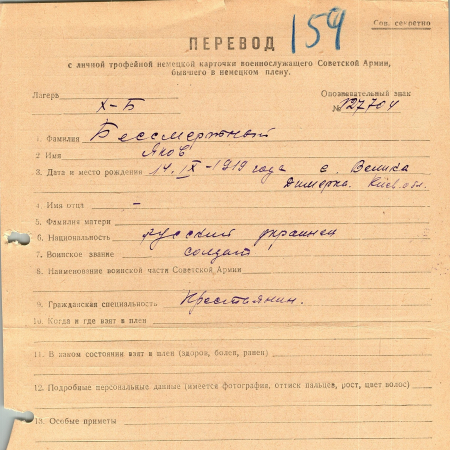 159
Сов. секретно
ПЕРЕВОД
с личной трофейной немецкой карточки военнослужащего Советской Армии,
бывшего в немецком плену.
Лагерь
Опознавательный знак
X-Б
№ 127704
1. Фамилия Бессмертный
2 Имя Яков
3. Дата и место рождения 14. IX-1919 года с. Велика
Димерка. Киев. обл.
4. Имя отца –
5. Фамилия матери
6. Национальность русский украинец
7. Воинское звание солдат
8. Наименование воинской части Советской Армии
9. Гражданская специальность Крестьянин.
10. Когда и где взят в плен
11. В каком состоянии взят в плен (здоров, болен, ранен)
12. Подробные персональные данные (имеется фотография, оттиск пальцев, рост, цвет волос)
13. Особые приметы